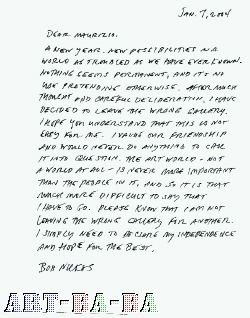 JAN. 7, 2004
DEAR MAURIZIO.
A NEW YEAR. NEW POSSIBILITIES IN A
WORLD AS TROUBLED AS WE HAVE EVER KNOWN.
NOTHING SEEMS PERMANENT, AND IT'S NO
USE PRETENDING OTHERWISE. AFTER MUCH
THOUGHT AND CAREFUL DELIBERATION, I HAVE
DECIDED TO LEAVE THE WRONG GALLERY.
I HOPE YOU UNDERSTAND THAT THIS IS NOT
EASY FOR ME. I VALUE OUR FRIENDSHIP
AND WOULD NEVER DO ANYTHING TO CALL
IT INTO QUESTION. THE ART WORLD - NOT
A WORLD AT ALL - IS NEVER MORE IMPORTANT
THAN THE PEOPLE IN IT, AND SO IT IS THAT
MUCH MORE DIFFICULT TO SAY THAT
I HAVE TO GO. PLEASE KNOW THAT I AM NOT
LEAVING THE WRONG GALLERY FOR ANOTHER.
I SIMPLY NEED TO DECLARE MY INDEPENDENCE
AND HOPE FOR THE BEST.
BOB NICKAS
ART-BA-BA